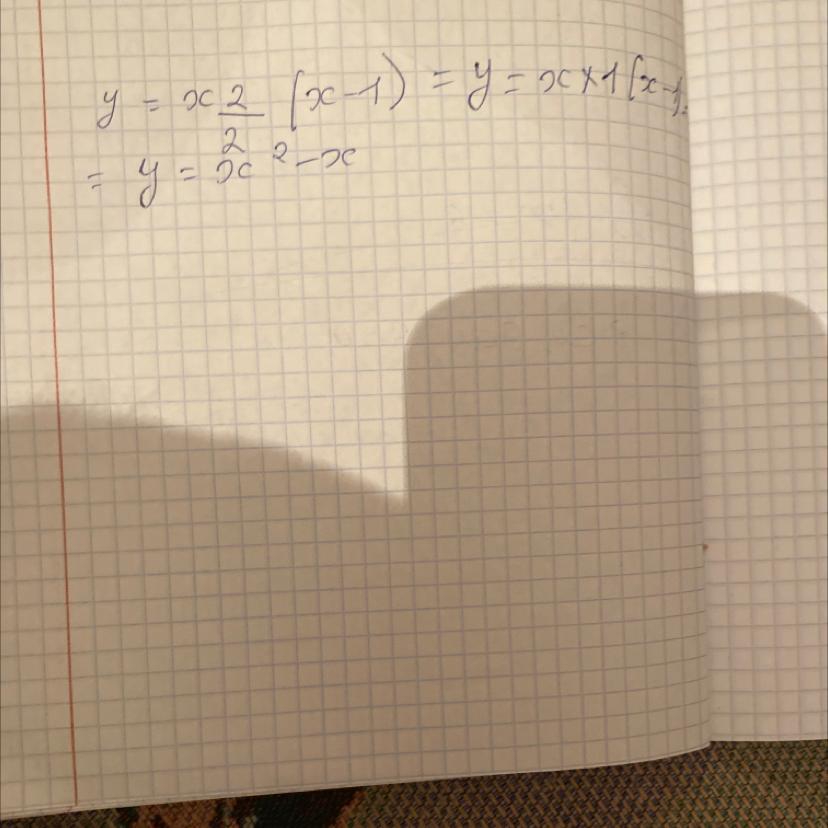 y = x 2/2 (x-1) = y = x*1(x-1)=
= y = x²-x